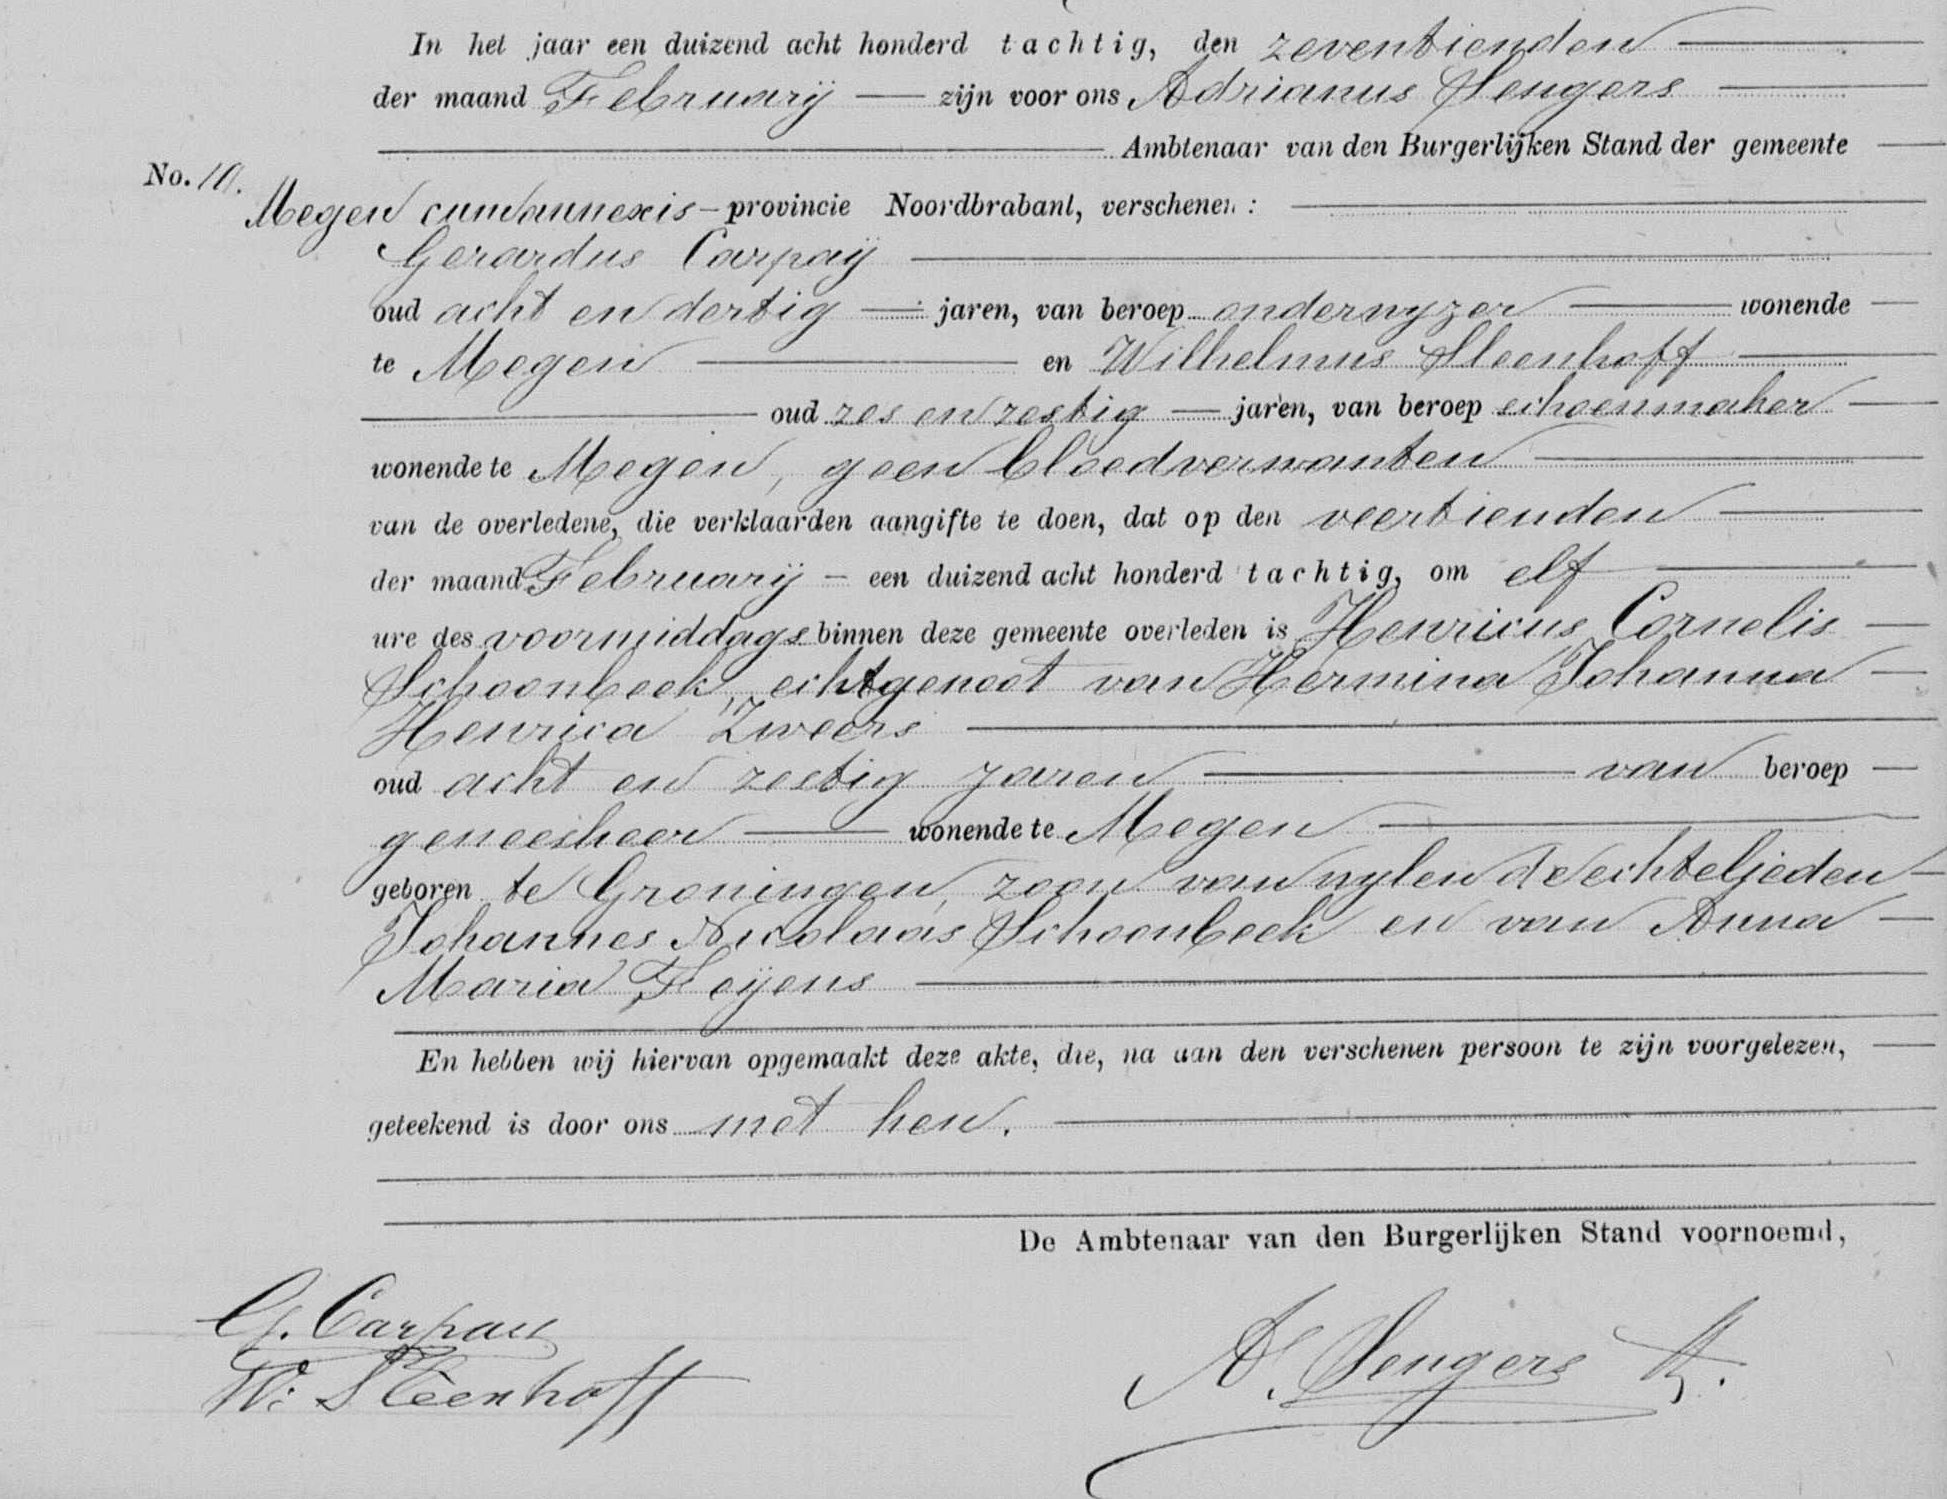 In het jaar een duizend acht honderd tachtig, den zeventienden
der maand February zijn voor ons Adrianus Sengers
Ambtenaar van den Burgerlijken Stand der gemeente
No. 10.
Megen cum annexis - provincie Noordbrabant, verschenen:
Gerardus Carpaij
oud acht en dertig jaren, van beroep onderwyzer wonende
te Megen en Wilhelmus Steenhoff
oud zes en zestig jaren, van beroep schoenmaker
wonende te Megen, geen bloedverwanten
van de overledene, die verklaarden aangifte te doen, dat op den veertienden
der maand February een duizend acht honderd tachtig, om elf
ure des voormiddags binnen deze gemeente overleden is Henricus Cornelis
Schoonbeek, echtgenoot van Hermina Johanna
Henrica Zweers
oud acht en zestig jaren van beroep
geneesheer wonende te Megen
geboren te Groningen, zoon van wylen de echtelieden
Johannes Nicolaas Schoonbeek en van Anna
Maria Feijens
En hebben wij hiervan opgemaakt deze akte, die, na aan den verschenen persoon te zijn voorgelezen,
geteekend is door ons met hen.
De Ambtenaar van den Burgerlijken Stand voornoemd,
G. Carpaij
W. Steenhoff
A. Sengers